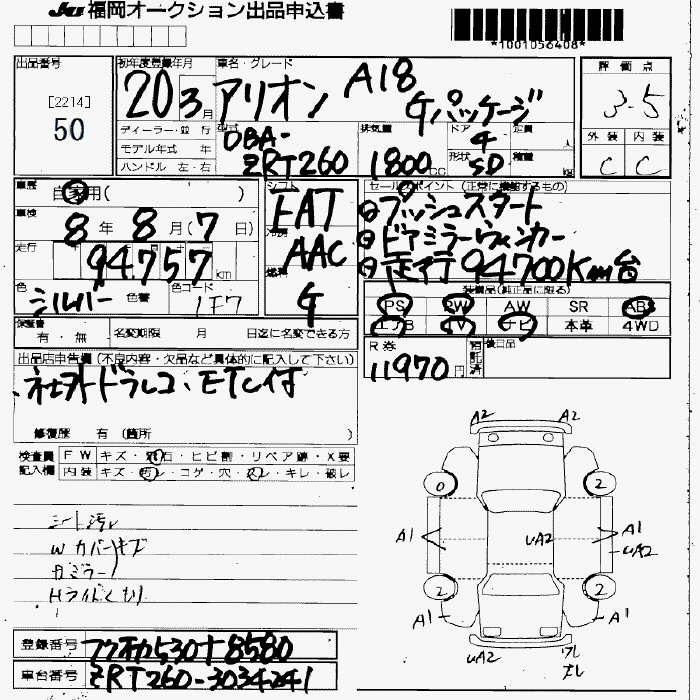 JU 福岡オークション出品申込書
*1001056408*
出品番号
[2214]
50
初年度登録年月
20 3 月
車名・グレード
アリオン A18
Gパッケージ
評価点
3.5
外装 内装
C C
ディーラー・並 行
モデル年式 年
ハンドル 左・右
型式
DBA-
ZRT260
排気量
1800 CC
ドア
4
形状
SD
定員
人
積載
kg
車歴
自家用( )
車検
8 年 8 月(7 日)
走行
94757 km
色
シルバー
色替
色コード
1F7
シフト
FAT
冷房
AAC
燃料
G
セールスポイント (正常に機能するもの)
プッシュスタート
ドアミラーウィンカー
走行94700Km台
装備品(純正品に限る)
PS PW AW SR ABS
エアB TV ナビ 本革 4WD
保証書
有・無
名変期限 月 日迄に名変できる方
R券
11970 円
後日品
出品店申告欄 (不良内容・欠品など具体的に記入して下さい)
社外ドラレコ、ETC付
修復歴 有 (箇所 )
検査員
記入欄
FW キズ・飛石・ヒビ割・リペア跡・X要
内装 キズ・汚レ・コゲ・穴・スレ・キレ・破レ
シート汚レ
Wカバーキズ
Bミラー
Hライトくもり
A2 A2
0 2
A1 A1
UA2 UA2
2 2
A1 A1
UA2 ワレ
登録番号 フクオカ530サ8580
車台番号 ZRT260-3034241